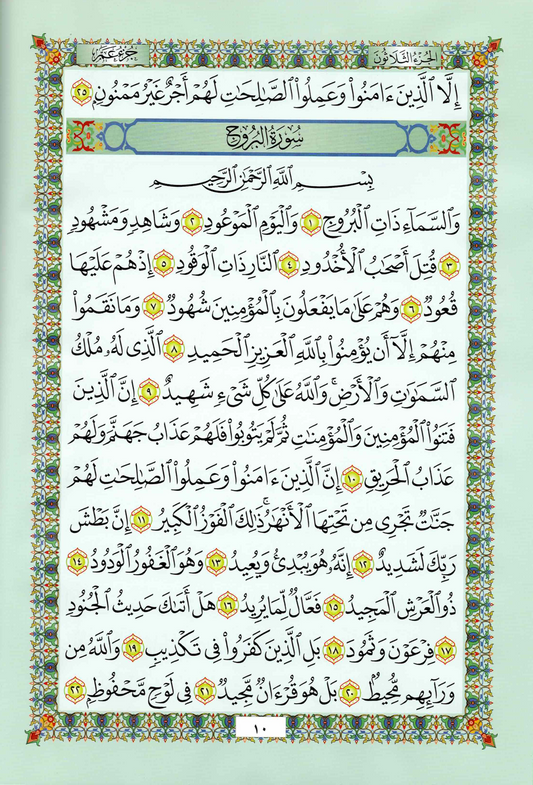 الجزء الثلاثون
جزء عم
إِلَّا ٱلَّذِينَ ءَامَنُوا۟ وَعَمِلُوا۟ ٱلصَّـٰلِحَـٰتِ لَهُمْ أَجْرٌ غَيْرُ مَمْنُونٍۭ ٢٥
سُورَةُ البُرُوجِ
بِسْمِ ٱللَّهِ ٱلرَّحْمَـٰنِ ٱلرَّحِيمِ
وَٱلسَّمَآءِ ذَاتِ ٱلْبُرُوجِ ١ وَٱلْيَوْمِ ٱلْمَوْعُودِ ٢ وَشَاهِدٍ وَمَشْهُودٍ
٣ قُتِلَ أَصْحَـٰبُ ٱلْأُخْدُودِ ٤ ٱلنَّارِ ذَاتِ ٱلْوَقُودِ ٥ إِذْ هُمْ عَلَيْهَا
قُعُودٌ ٦ وَهُمْ عَلَىٰ مَا يَفْعَلُونَ بِٱلْمُؤْمِنِينَ شُهُودٌ ٧ وَمَا نَقَمُوا۟
مِنْهُمْ إِلَّآ أَن يُؤْمِنُوا۟ بِٱللَّهِ ٱلْعَزِيزِ ٱلْحَمِيدِ ٨ ٱلَّذِى لَهُۥ مُلْكُ
ٱلسَّمَـٰوَٰتِ وَٱلْأَرْضِ ۚ وَٱللَّهُ عَلَىٰ كُلِّ شَىْءٍ شَهِيدٌ ٩ إِنَّ ٱلَّذِينَ
فَتَنُوا۟ ٱلْمُؤْمِنِينَ وَٱلْمُؤْمِنَـٰتِ ثُمَّ لَمْ يَتُوبُوا۟ فَلَهُمْ عَذَابُ جَهَنَّمَ وَلَهُمْ
عَذَابُ ٱلْحَرِيقِ ١٠ إِنَّ ٱلَّذِينَ ءَامَنُوا۟ وَعَمِلُوا۟ ٱلصَّـٰلِحَـٰتِ لَهُمْ
جَنَّـٰتٌ تَجْرِى مِن تَحْتِهَا ٱلْأَنْهَـٰرُ ۚ ذَٰلِكَ ٱلْفَوْزُ ٱلْكَبِيرُ ١١ إِنَّ بَطْشَ
رَبِّكَ لَشَدِيدٌ ١٢ إِنَّهُۥ هُوَ يُبْدِئُ وَيُعِيدُ ١٣ وَهُوَ ٱلْغَفُورُ ٱلْوَدُودُ ١٤
ذُو ٱلْعَرْشِ ٱلْمَجِيدُ ١٥ فَعَّالٌ لِّمَا يُرِيدُ ١٦ هَلْ أَتَىٰكَ حَدِيثُ ٱلْجُنُودِ
١٧ فِرْعَوْنَ وَثَمُودَ ١٨ بَلِ ٱلَّذِينَ كَفَرُوا۟ فِى تَكْذِيبٍ ١٩ وَٱللَّهُ مِن
وَرَآئِهِم مُّحِيطٌۢ ٢٠ بَلْ هُوَ قُرْءَانٌ مَّجِيدٌ ٢١ فِى لَوْحٍ مَّحْفُوظٍۭ ٢٢
١٠